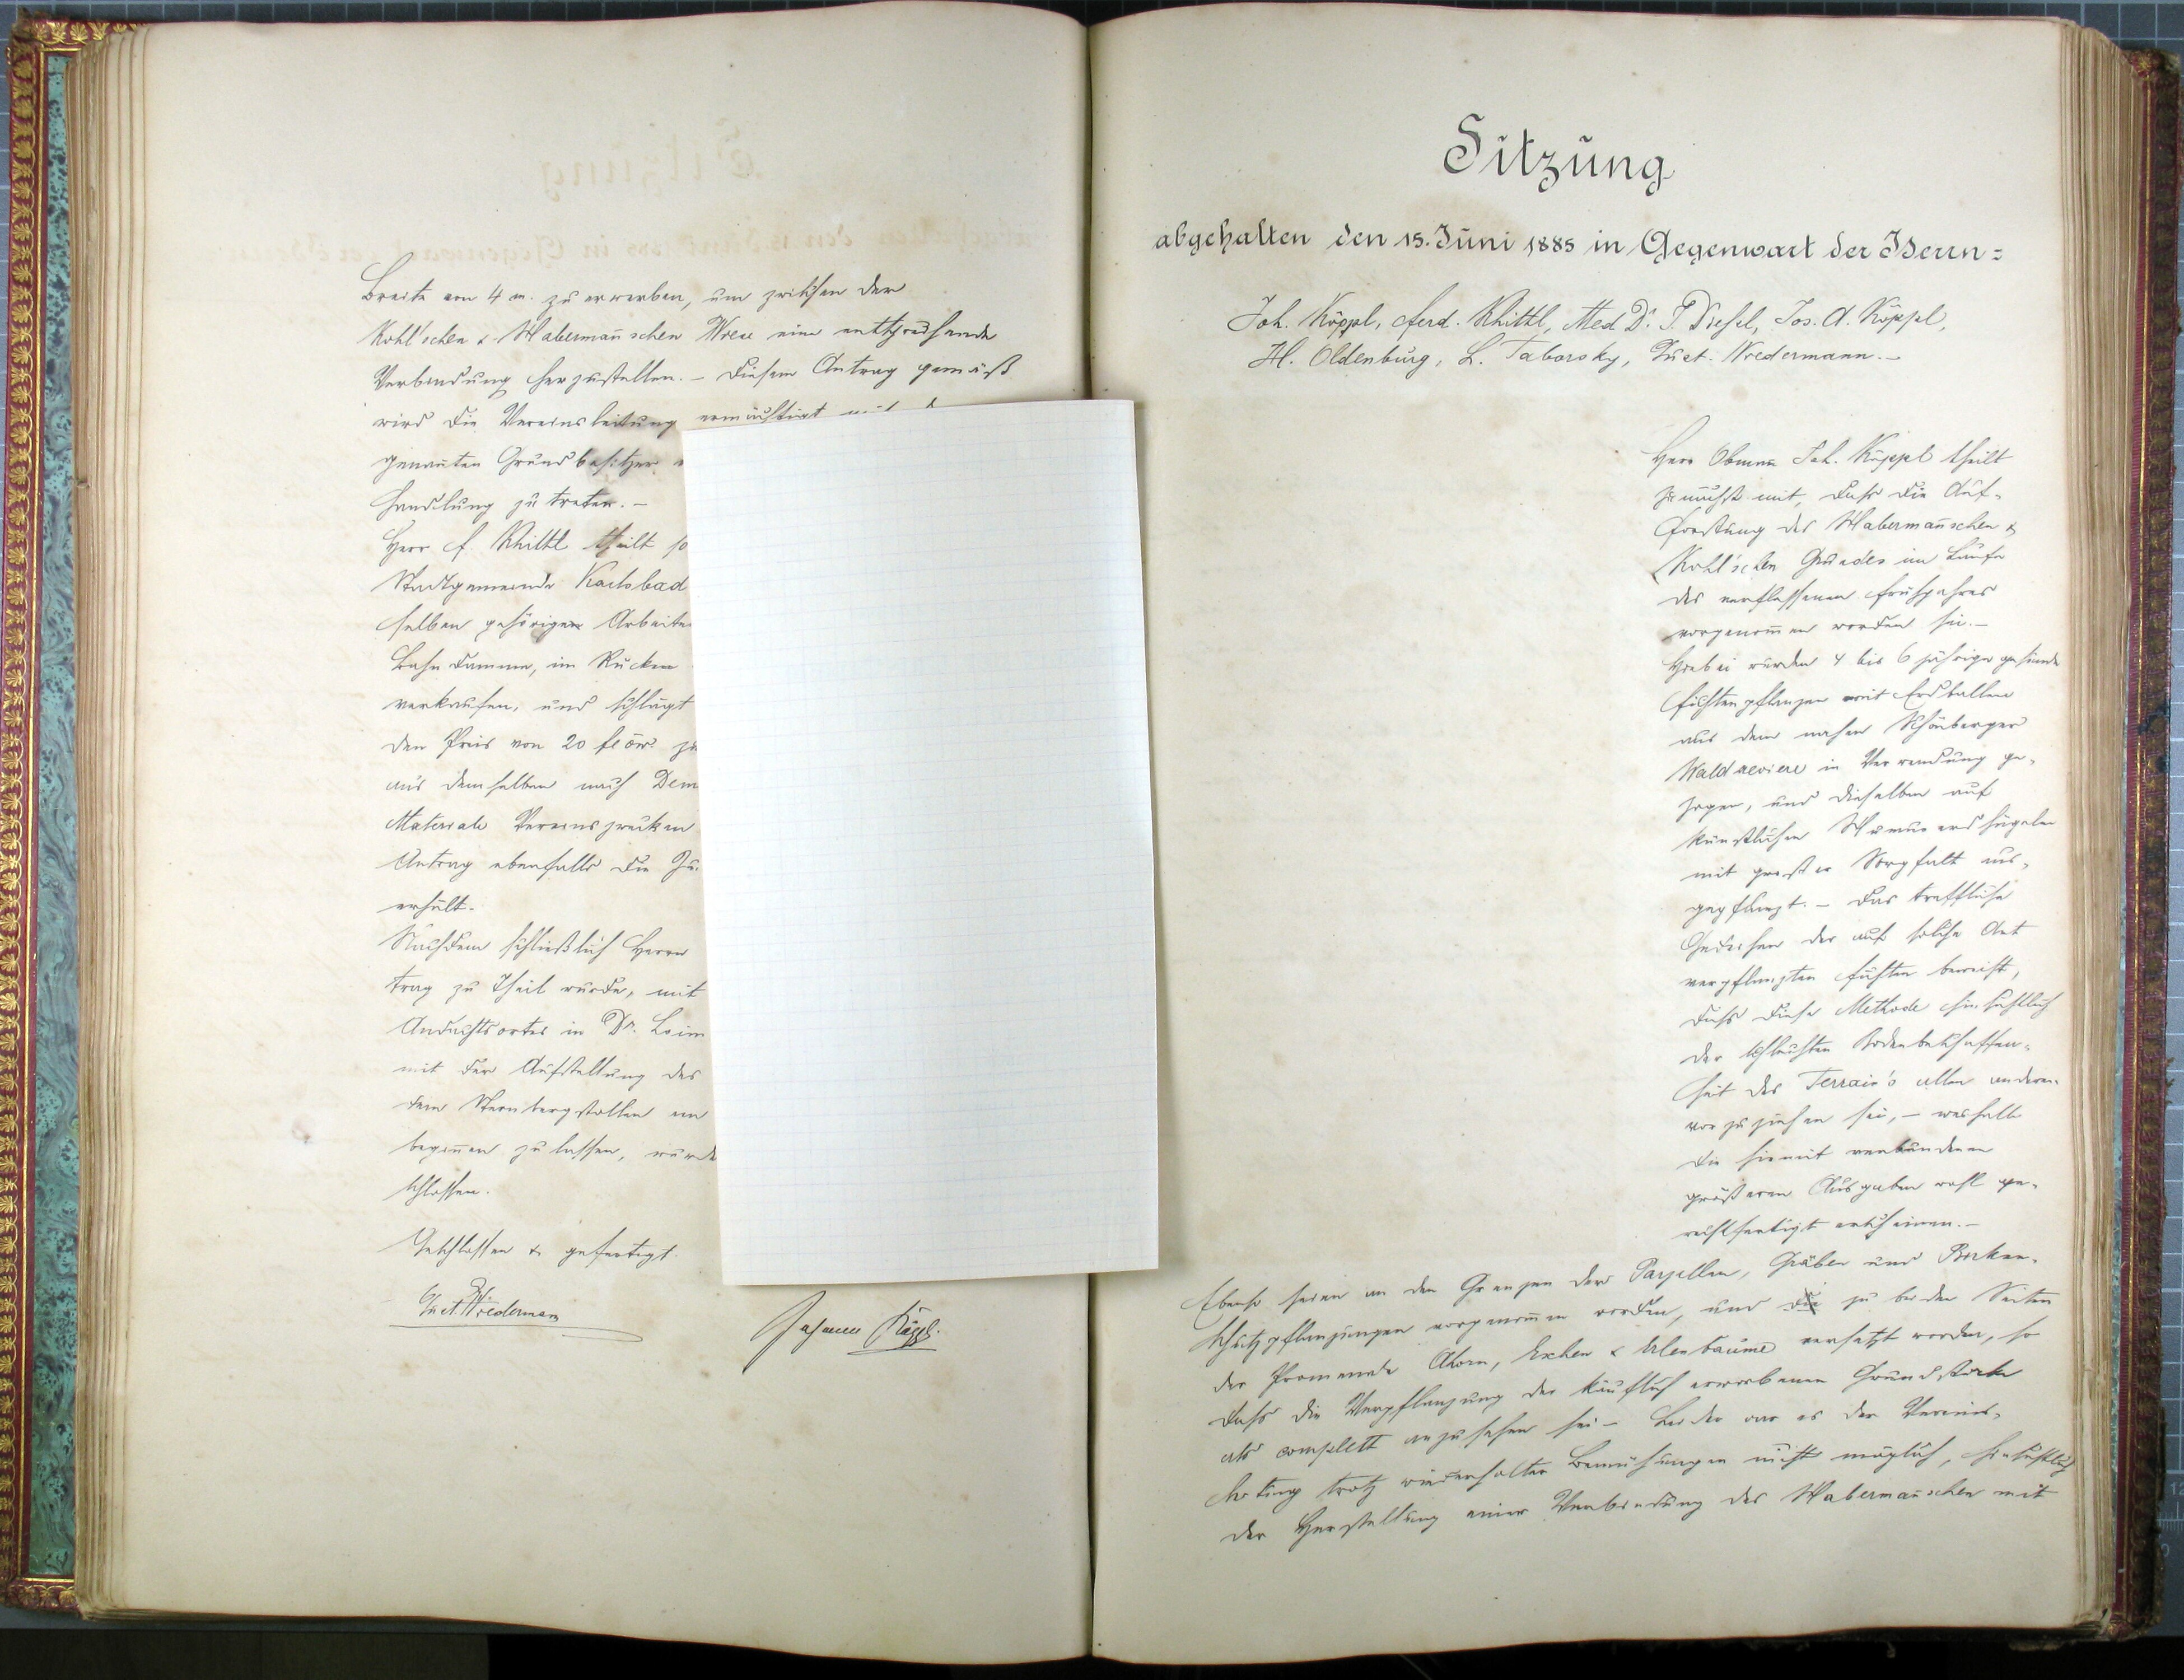 Breite von 4 m. zu erwerben, um zwischen der
Kohl'schen & Habermañschen Wiese eine entsprechende
Verbindung herzustellen. – Diesem Antrag gemäß
wird die Vereinsleitung ermächtigt mit
genañten Grundbesitzer
handlung zu treten. –
Herr F. Knittl theilt
Stadtgemeinde Karlsbad
selben gehörigen Arbeiter
Bahndamme, im Rücken
verkaufen, und schlägt
den Preis von 20 fl öw.
aus demselben nach Dem
Materiale Vereinszwecken
Antrag ebenfalls die Zu
erhält.
Nachdem schließlich Herrn
trag zu Theil wurde, mit
Andachtsortes in Dr.
mit der Aufstellung des
dem Sternbergstollen
begiñen zu lassen, wurde
schlossen.
Geschlossen & gefertigt.
Wiedermañ
Johann Köppl.
Sitzung
abgehalten den 15. Juni 1885 in Gegenwart der Herrn:
Joh. Köppl, Ferd. Knittl, Med Dr. J. Diesel, Jos. A. Köppl,
H. Oldenburg, L. Taborsky, Wiedermann. –
Herr Obmañ Joh. Köppl theilt
zunächst mit, dass die Auf-
forstung des Habermañschen &
Kohl'schen Grundes im Laufe
des verflossenen Frühjahres
vorgenom̄en worden sei. –
Hiebei wurden 4 bis 6 jährige gesunde
Fichtenpflanzen mit Erdballen
aus dem nahen Schönberger
Waldreviere in Verwendung ge-
zogen, und dieselben auf
künstlichen Humuserdhügeln
mit großer Sorgfalt aus-
gepflanzt. – Das treffliche
Gedeihen der auf solche Art
verpflanzten Fichten beweist,
dass diese Methode hinsichtlich
der schlechten Bodenbeschaffen-
heit des Terrain's allen anderen
vorzuziehen sei, – weshalb
die hiemit verbundenen
größeren Ausgaben wohl ge-
rechtfertigt erscheinen. –
Ebenso seien an den Grenzen der Parzellen, Gräben und Birken-
schutzpflanzungen vorgenom̄en worden, und die zu beiden Seiten
der Promenade Ahorn, Eschen & Erlenbäume versetzt worden, so
dass die Verpflanzung der käuflich erworbenen Grundstücke
als complett anzusehen sei – Leider war es der Vereins-
leitung trotz wiederholter Bemühungen nicht möglich, hinsichtlich
der Herstellung einer Verbindung des Habermañschen mit